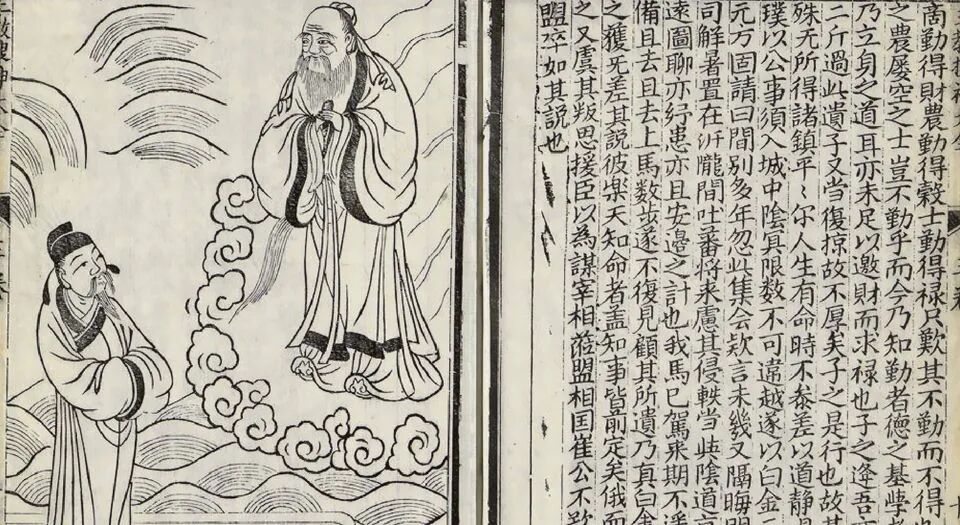 商勤得財農勤得穀士勤得禄只歎其不勤而不得
之農屢空之士豈不勤乎而今乃知勤者德之基學
乃立身之道耳亦未足以邀財而求禄也子之逢吾
二斤過此遺子又当復掠故不厚矣子之是行也故
殊无所得諸鎮平〻尔人生有命時不叅差以道静
璞以公事須入城中陰冥限数不可違越遂以白金
元方固請曰間别多年忽此集会欵言未幾又隔晦明
司解署置在汧隴間吐蕃将来慮其侵軼当与陰道
速圖聊亦紓患亦且安邊之計也我馬已駕来期不遥
備且去且去上馬数步遂不復見顧其所遺乃真白金
之獲无差其說彼樂天知命者盖知事皆前定矣俄而
之又虞其叛思援臣以為謀宰相蒞盟相国崔公不
盟卒如其說也